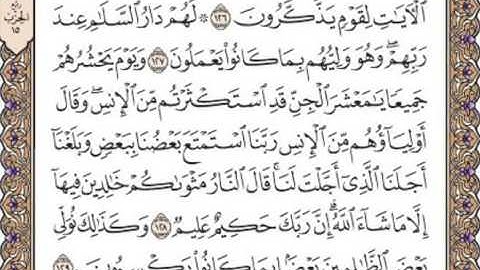 ربع
الحزب
١٥
ٱلۡأٓيَٰتِ لِقَوۡمٖ يَذَّكَّرُونَ ١٢٦ ۞ لَهُمۡ دَارُ ٱلسَّلَٰمِ عِندَ
رَبِّهِمۡۖ وَهُوَ وَلِيُّهُم بِمَا كَانُواْ يَعۡمَلُونَ ١٢٧ وَيَوۡمَ يَحۡشُرُهُمۡ
جَمِيعٗا يَٰمَعۡشَرَ ٱلۡجِنِّ قَدِ ٱسۡتَكۡثَرۡتُم مِّنَ ٱلۡإِنسِۖ وَقَالَ
أَوۡلِيَآؤُهُم مِّنَ ٱلۡإِنسِ رَبَّنَا ٱسۡتَمۡتَعَ بَعۡضُنَا بِبَعۡضٖ وَبَلَغۡنَآ
أَجَلَنَا ٱلَّذِيٓ أَجَّلۡتَ لَنَاۚ قَالَ ٱلنَّارُ مَثۡوَىٰكُمۡ خَٰلِدِينَ فِيهَآ
إِلَّا مَا شَآءَ ٱللَّهُۗ إِنَّ رَبَّكَ حَكِيمٌ عَلِيمٞ ١٢٨ وَكَذَٰلِكَ نُوَلِّي
بَعۡضَ ٱلظَّٰلِمِينَ بَعۡضَۢا بِمَا كَانُواْ يَكۡسِبُونَ ١٢٩